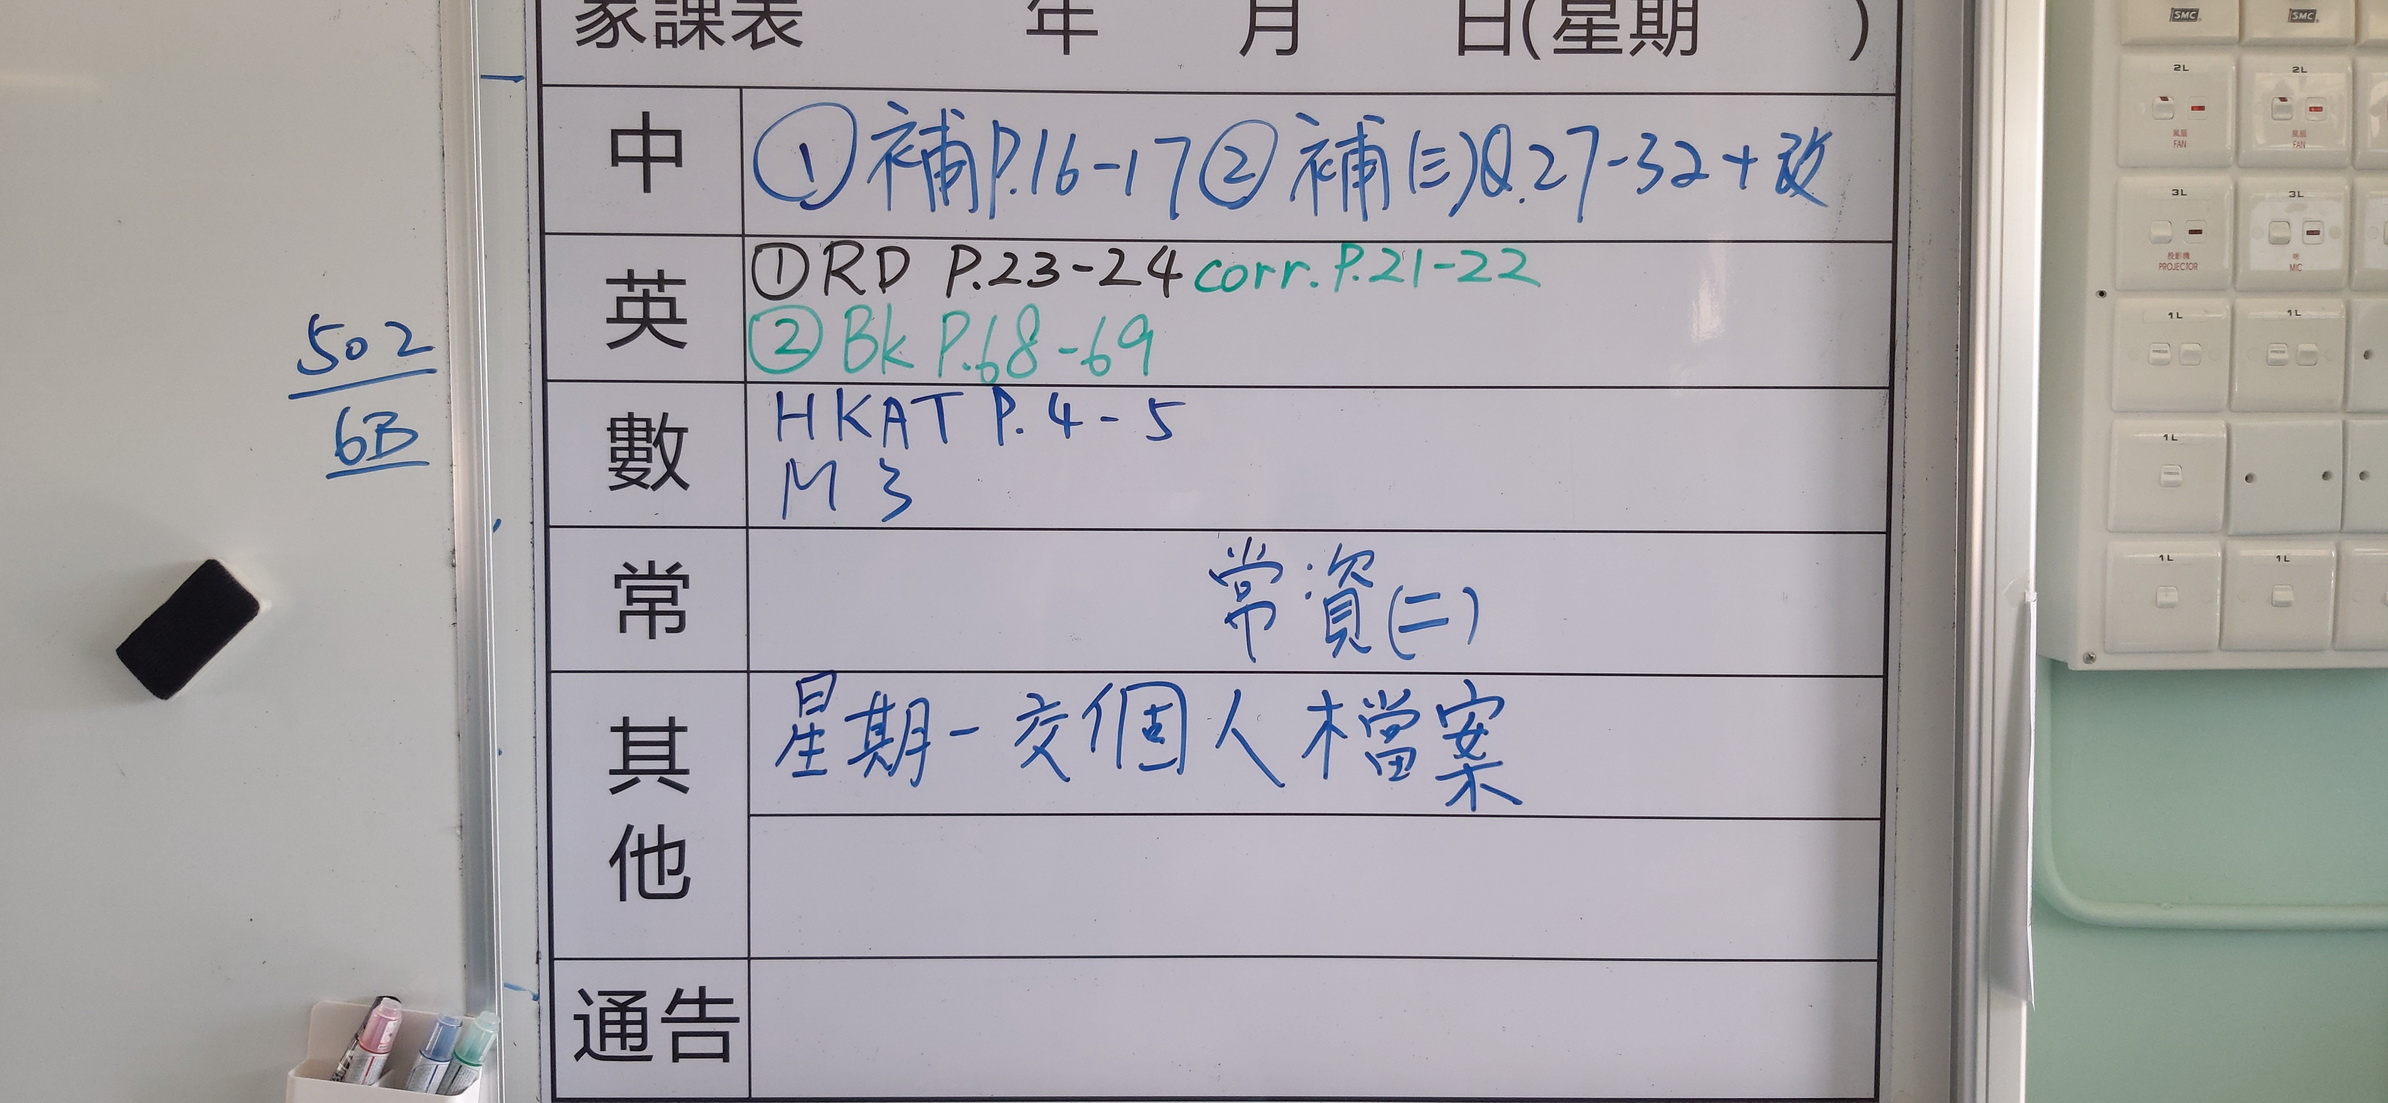 家課表 年 月 日(星期 )
中 ①補P.16-17②補(三)Q.27-32+改
英 ①RD P.23-24 corr. P.21-22
②Bk P.68-69
數 HKAT P.4-5
M3
常 常資(二)
其他 星期一交個人檔案
通告
502
6B
SMC SMC
2L 2L
風扇 風扇
FAN FAN
3L 3L
投影機 咪
PROJECTOR MIC
1L 1L
1L
1L 1L